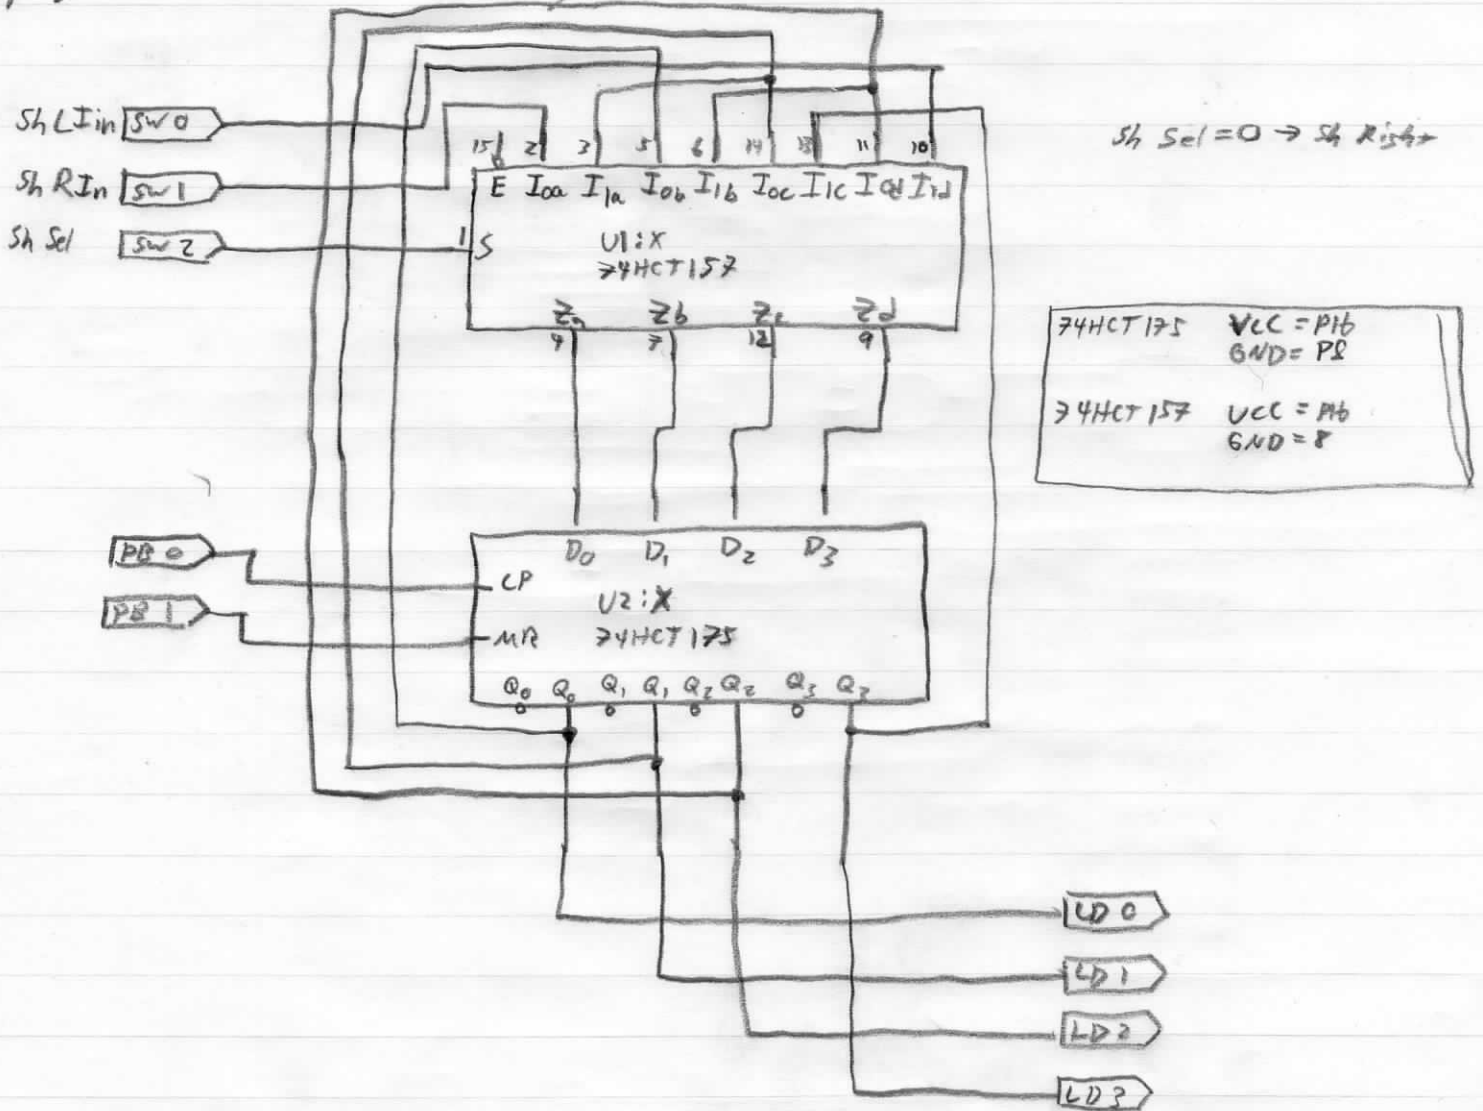 Sh LIin SW 0
Sh RIn SW 1
Sh Sel SW 2
Sh Sel = 0 → Sh Right
15 2 3 5 6 14 13 11 10
E I0a I1a I0b I1b I0c I1c I0d I1d
1 S
U1:X
74HCT157
Za Zb Zc Zd
4 7 12 9
74HCT175 VCC = P16
GND = P8
74HCT157 VCC = P16
GND = 8
PB 0
PB 1
D0 D1 D2 D3
CP
MR
U2:X
74HCT175
Q0 Q0 Q1 Q1 Q2 Q2 Q3 Q3
LD 0
LD 1
LD 2
LD 3